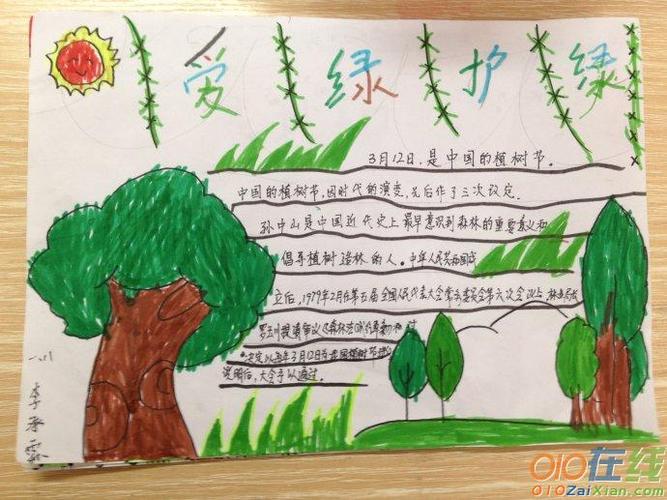 爱绿护绿
3月12日,是中国的植树节。
中国的植树节,因时代的演变,先后作了三次议定.
孙中山是中国近代史上最早意识到森林的重要意义和
倡导植树造林的人。中华人民共和国成
立后,1979年2月在第五届全国人民代表大会常务委员会第六次会议上,林业局长
罗玉川提请审议
决定以每年3月12日为我国植树节
说明后,大会予以通过。
一.1
李
010在线
010ZaiXian.com